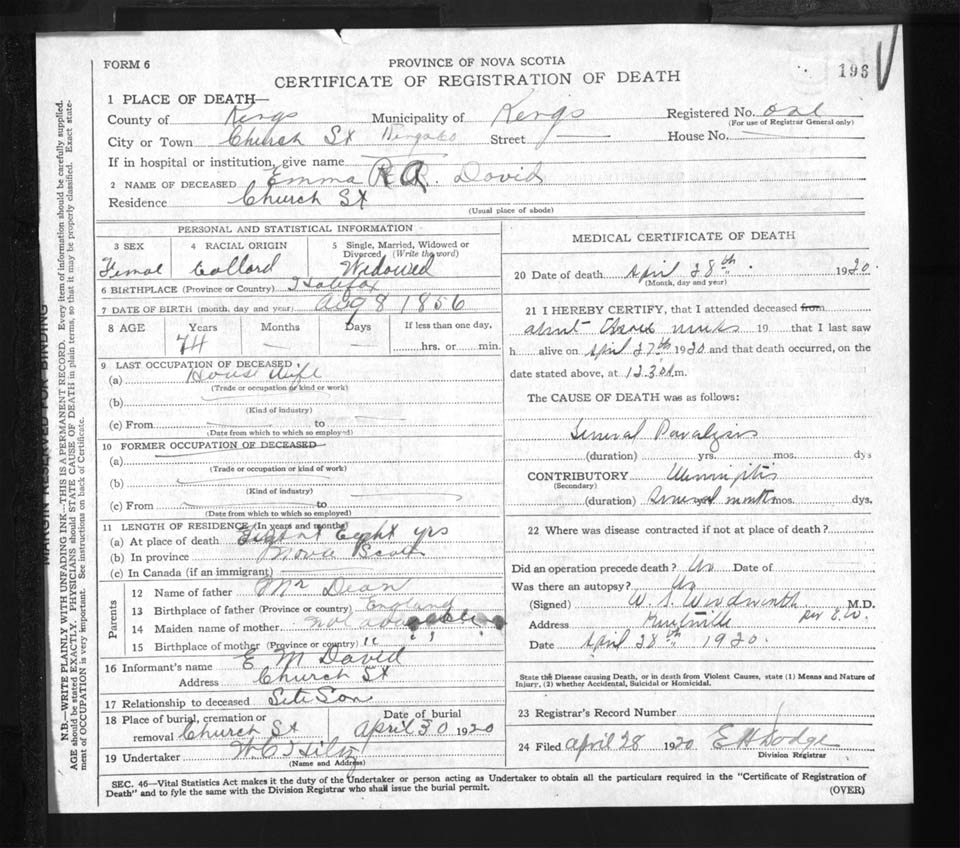 FORM 6
PROVINCE OF NOVA SCOTIA
196
CERTIFICATE OF REGISTRATION OF DEATH
1 PLACE OF DEATH—
County of Kings Municipality of Kings Registered No. one
(For use of Registrar General only)
City or Town Church St Street House No.
If in hospital or institution, give name
2 NAME OF DECEASED Emma R A. David
Residence Church St
(Usual place of abode)
PERSONAL AND STATISTICAL INFORMATION
3 SEX 4 RACIAL ORIGIN 5 Single, Married, Widowed or Divorced (Write the word)
Femal Collord Widowed
6 BIRTHPLACE (Province or Country) Halifax
7 DATE OF BIRTH (month, day and year) Aug 8 1856
8 AGE Years Months Days If less than one day,
74 — — ...... hrs. or ...... min.
9 LAST OCCUPATION OF DECEASED
(a) House Wife
(Trade or occupation or kind or work)
(b)
(Kind of industry)
(c) From to
(Date from which to which so employed)
10 FORMER OCCUPATION OF DECEASED
(a)
(Trade or occupation or kind of work)
(b)
(Kind of industry)
(c) From to
(Date from which to which so employed)
11 LENGTH OF RESIDENCE (In years and months)
(a) At place of death Eight yrs
(b) In province Nova Scotia
(c) In Canada (if an immigrant)
Parents
12 Name of father Mr Dean
13 Birthplace of father (Province or country) England
14 Maiden name of mother not
15 Birthplace of mother (Province or country) " "
16 Informant's name E M David
Address Church St
17 Relationship to deceased Son
18 Place of burial, cremation or removal Church St Date of burial April 30 1920
19 Undertaker W C
(Name and Address)
MEDICAL CERTIFICATE OF DEATH
20 Date of death April 28th 1920
(Month, day and year)
21 I HEREBY CERTIFY, that I attended deceased from
about weeks 19 that I last saw
h alive on April 27th 1920 and that death occurred, on the
date stated above, at 12.30 a.m.
The CAUSE OF DEATH was as follows:
General Paralysis
(duration) yrs. mos. dys
CONTRIBUTORY
(Secondary)
(duration) Several months mos. dys.
22 Where was disease contracted if not at place of death?
Did an operation precede death? No Date of
Was there an autopsy? No
(Signed) W. S. Woodworth M.D.
Address Kentville
Date April 28th 1920.
State the Disease causing Death, or in death from Violent Causes, state (1) Means and Nature of
Injury, (2) whether Accidental, Suicidal or Homicidal.
23 Registrar's Record Number
24 Filed April 28 1920 E H Dodge
Division Registrar
SEC. 46—Vital Statistics Act makes it the duty of the Undertaker or person acting as Undertaker to obtain all the particulars required in the "Certificate of Registration of
Death" and to fyle the same with the Division Registrar who shall issue the burial permit.
(OVER)
MARGIN RESERVED FOR BINDING
N.B.—WRITE PLAINLY WITH UNFADING INK—THIS IS A PERMANENT RECORD. Every item of information should be carefully supplied.
AGE should be stated EXACTLY. PHYSICIANS should STATE CAUSE OF DEATH in plain terms, so that it may be properly classified. Exact state-
ment of OCCUPATION is very important. See instructions on back of Certificate.